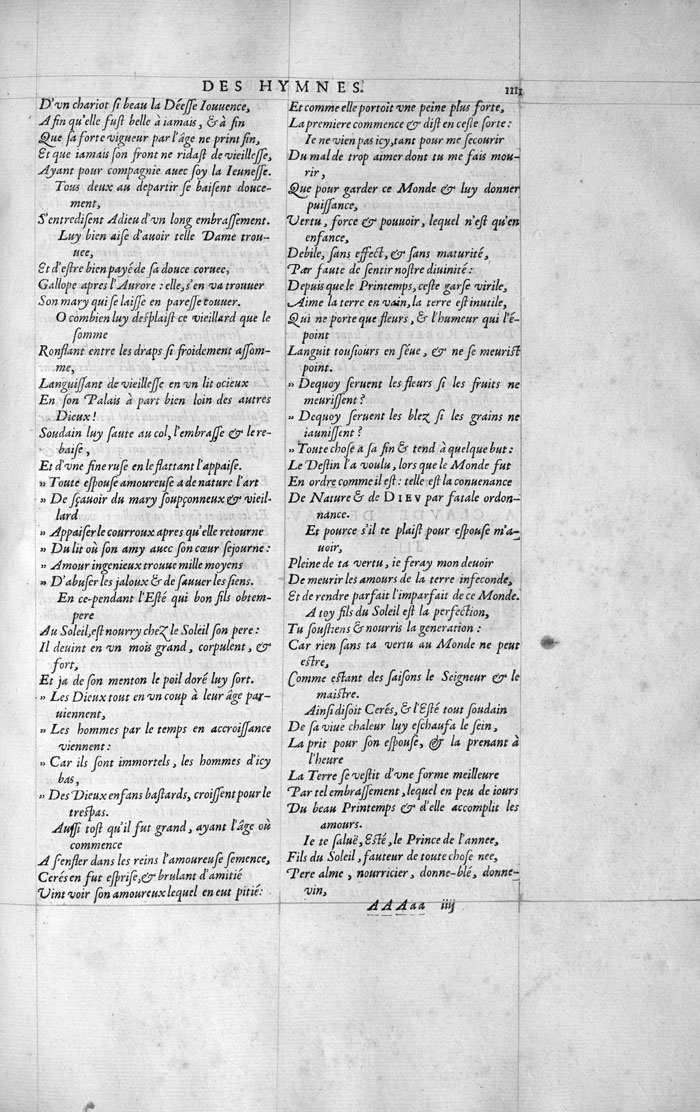 DES HYMNES.
IIII
D'vn chariot si beau la Déesse Iouuence,
A fin qu'elle fust belle à iamais, & à fin
Que sa forte vigueur par l'âge ne print fin,
Et que iamais son front ne ridast de vieillesse,
Ayant pour compagnie auec soy la Ieunesse.
Tous deux au departir se baisent douce-
ment,
S'entredisent Adieu d'vn long embrassement.
Luy bien aise d'auoir telle Dame trou-
uee,
Et d'estre bien payé de sa douce coruee,
Gallope apres l'Aurore : elle, s'en va trouuer
Son mary qui se laisse en paresse couuer.
O combien luy desplaist ce vieillard que le
somme
Ronflant entre les draps si froidement assom-
me,
Languissant de vieillesse en vn lit ocieux
En son Palais à part bien loin des autres
Dieux !
Soudain luy saute au col, l'embrasse & le re-
baise,
Et d'vne fine ruse en le flattant l'appaise.
» Toute espouse amoureuse a de nature l'art
» De sçauoir du mary soupçonneux & vieil-
lard
» Appaiser le courroux apres qu'elle retourne
» Du lit où son amy auec son cœur sejourne :
» Amour ingenieux trouue mille moyens
» D'abuser les jaloux & de sauuer les siens.
En ce-pendant l'Esté qui bon fils obtem-
pere
Au Soleil, est nourry chez le Soleil son pere :
Il deuint en vn mois grand, corpulent, &
fort,
Et ja de son menton le poil doré luy sort.
» Les Dieux tout en vn coup à leur âge par-
uiennent,
» Les hommes par le temps en accroissance
viennent :
» Car ils sont immortels, les hommes d'icy
bas,
» Des Dieux enfans bastards, croissent pour le
trespas.
Aussi tost qu'il fut grand, ayant l'âge où
commence
A s'enfler dans les reins l'amoureuse semence,
Cerés en fut esprise, & brulant d'amitié
Vint voir son amoureux lequel en eut pitié :
Et comme elle portoit vne peine plus forte,
La premiere commence & dist en ceste sorte :
Ie ne vien pas icy, tant pour me secourir
Du mal de trop aimer dont tu me fais mou-
rir,
Que pour garder ce Monde & luy donner
puissance,
Vertu, force & pouuoir, lequel n'est qu'en
enfance,
Debile, sans effect, & sans maturité,
Par faute de sentir nostre diuinité :
Depuis que le Printemps, ceste garse virile,
Aime la terre en vain, la terre est inutile,
Qui ne porte que fleurs, & l'humeur qui l'é-
point
Languit tousiours en séue, & ne se meurist
point.
» Dequoy seruent les fleurs si les fruits ne
meurissent ?
» Dequoy seruent les blez si les grains ne
iaunissent ?
» Toute chose a sa fin & tend à quelque but :
Le Destin l'a voulu, lors que le Monde fut
En ordre comme il est : telle est la conuenance
De Nature & de DIEV par fatale ordon-
nance.
Et pource s'il te plaist pour espouse m'a-
uoir,
Pleine de ta vertu, ie feray mon deuoir
De meurir les amours de la terre infeconde,
Et de rendre parfait l'imparfait de ce Monde.
A toy fils du Soleil est la perfection,
Tu soustiens & nourris la generation :
Car rien sans ta vertu au Monde ne peut
estre,
Comme estant des saisons le Seigneur & le
maistre.
Ainsi disoit Cerés, & l'Esté tout soudain
De sa viue chaleur luy eschaufa le sein,
La prit pour son espouse, & la prenant à
l'heure
La Terre se vestit d'vne forme meilleure
Par tel embrassement, lequel en peu de iours
Du beau Printemps & d'elle accomplit les
amours.
Ie te saluë, Esté, le Prince de l'annee,
Fils du Soleil, fauteur de toute chose nee,
Pere alme, nourricier, donne-blé, donne-
vin,
AAAaa iiij